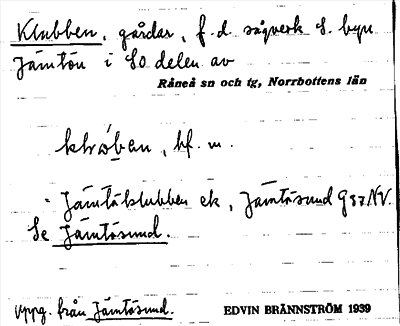 Klubben, gårdar, f.d. sågverk S. byn
Jämtön i SO delen av
Råneå sn och tg, Norrbottens län
bf. m.
Jämtöklubben ek, Jämtösund
Se Jämtösund.
Uppg. från Jämtösund.
EDVIN BRÄNNSTRÖM 1939